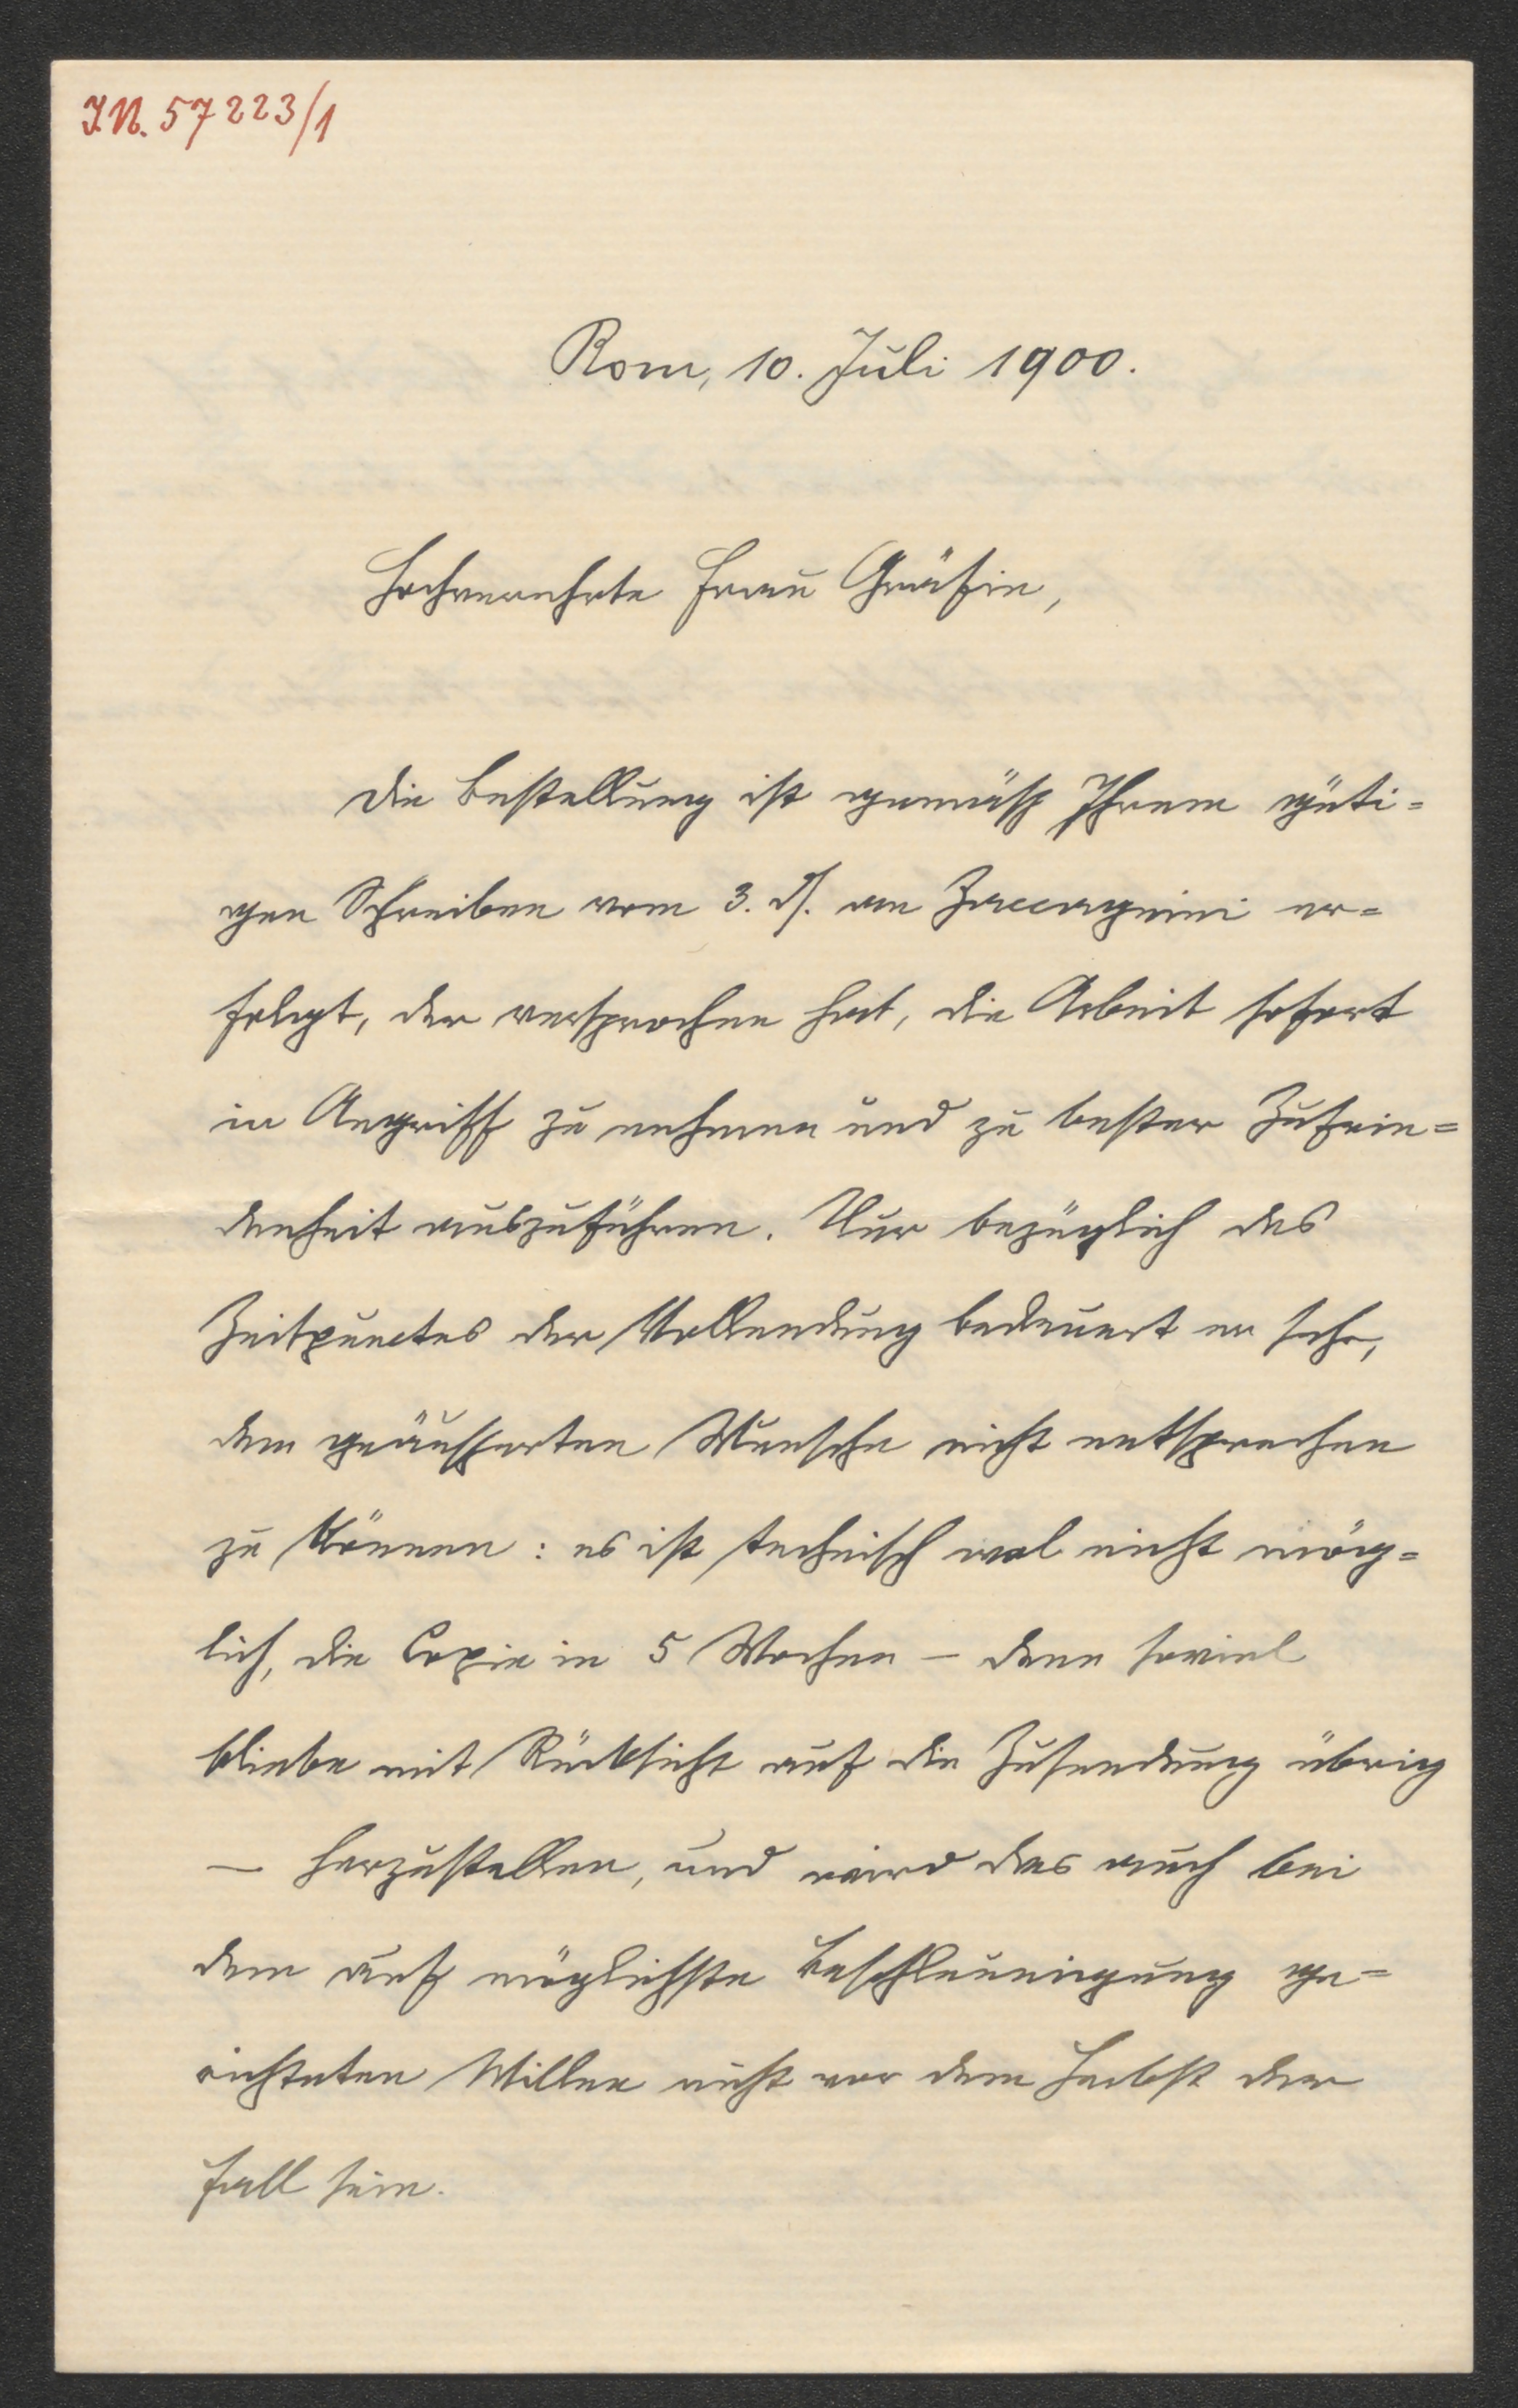 J.N. 57223/1
Rom, 10. Juli 1900.
Hochverehrte Frau Gräfin,
Die Bestellung ist gemäß Ihrem güti=
gen Schreiben vom 3. d. an Zaccagnini er=
folgt, der versprochen hat, die Arbeit sofort
in Angriff zu nehmen und zu bester Zufrie=
denheit auszuführen. Nur bezüglich des
Zeitpunctes der Vollendung bedauert er sehr,
dem geäusserten Wunsche nicht entsprechen
zu können: es ist technisch wol nicht mög=
lich, die Copie in 5 Wochen – denn soviel
bliebe mit Rücksicht auf die Zusendung übrig
– herzustellen, und wird das auch bei
dem auf möglichste Beschleunigung ge=
richteten Willen nicht vor dem Herbst der
Fall sein.